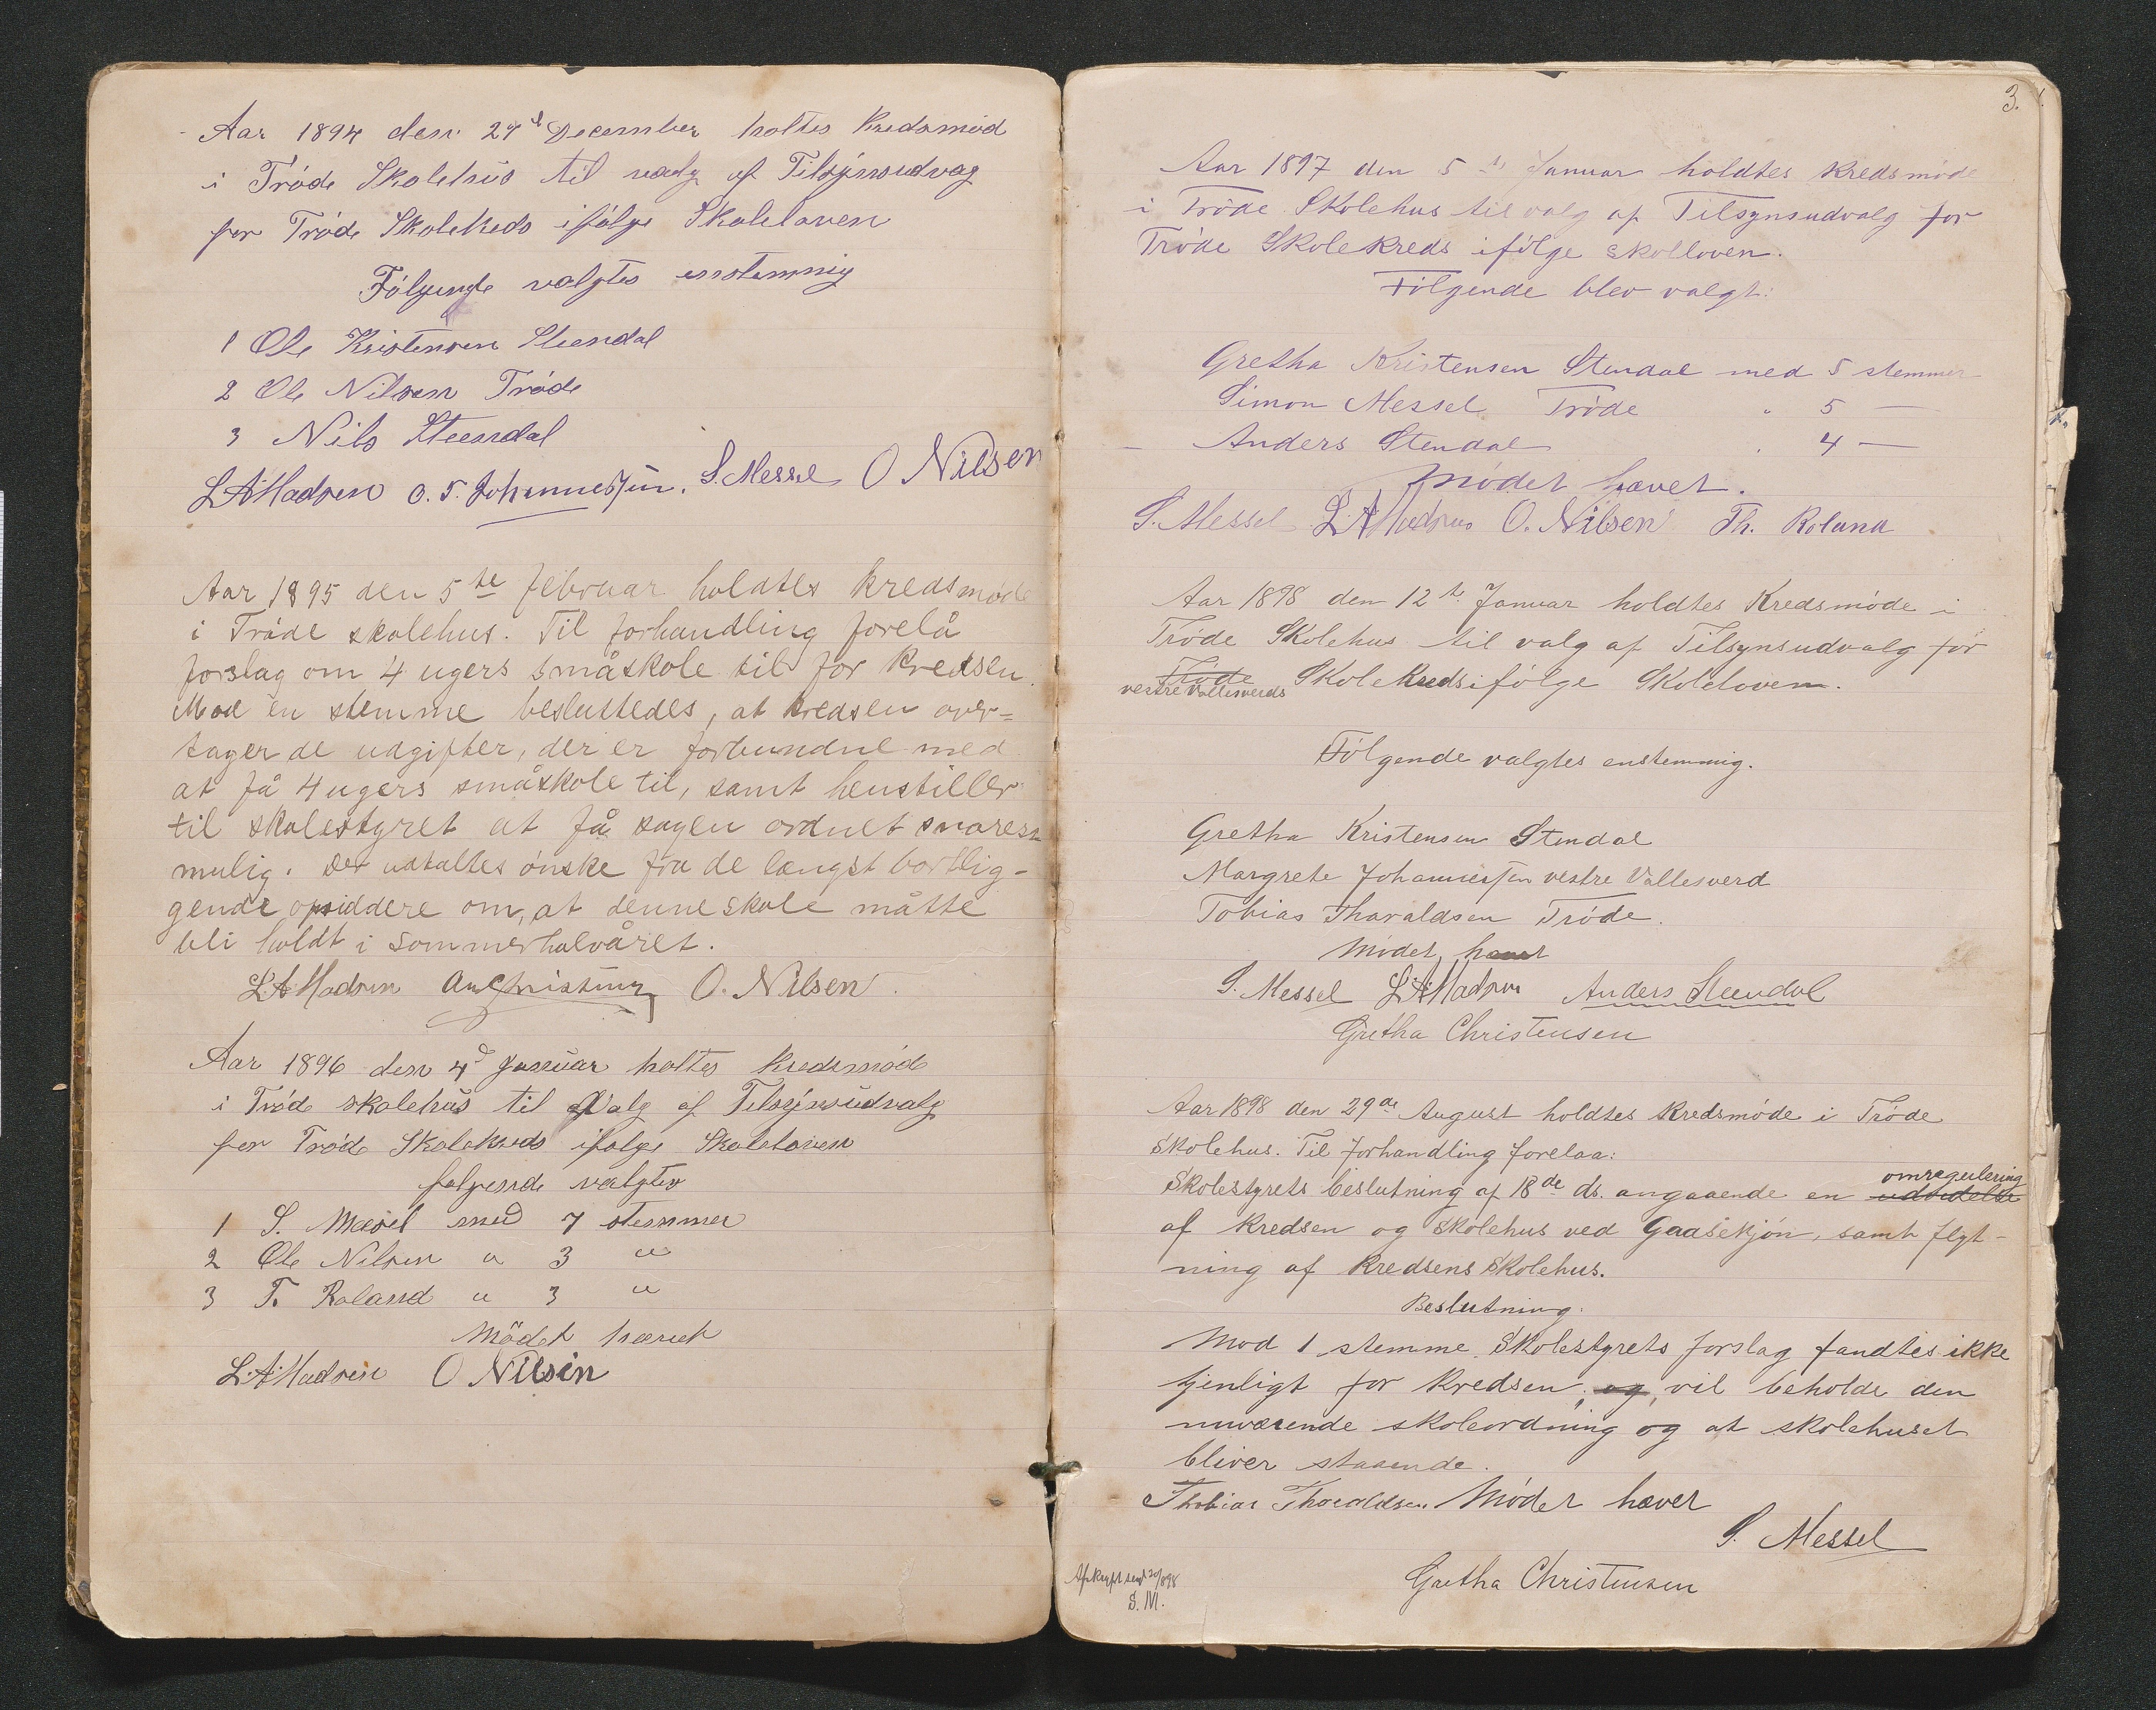 Aar 1894 den 27d December holtes Kredsmød
i Trøde Skolehus til valg af Tilsynsudvag
for Trøde Skolekreds ifølge Skoleloven
Følgende valgtes enstemmig
1 Ole Kristensen Steendal
2 Ole Nilsen Trøde
3 Nils Steendal
L A Madsen O. T. Johannessen. S. Messel O Nilsen
Aar 1895 den 5te februar holdtes kredsmøde
i Trøde skolehus. Til forhandling forelå
forslag om 4 ugers småskole til for kredsen.
Mod en stemme besluttedes, at kredsen over=
tager de udgifter, der er forbundne med
at få 4 ugers småskole til, samt henstiller
til skolestyret at få sagen ordnet snarest
mulig. Der udtaltes ønske fra de længst bortlig-
gende opsiddere om, at denne skole måtte
bli holdt i sommerhalvåret.
L A Madsen O. Nilsen.
Aar 1896 den 4d Januar holtes kredsmød
i Trøde skolehus til Valg af Tilsynsudvalg
for Trøde Skolekreds ifølge Skoleloven
følgende valgtes
1 S. Mæsel med 7 stemmer
2 Ole Nilsen " 3 "
3 T. Roland " 3 "
Mødet hævet
L A Madsen O Nilsin
3.
Aar 1897 den 5te Januar holdtes Kredsmøde
i Trøde Skolehus til valg af Tilsynsudvalg for
Trøde Skolekreds ifølge skolloven.
Følgende blev valgt:
Gretha Kristensen Stendal med 5 stemmer
Simon Messel Trøde " 5 —
Anders Stendal " 4 —
Mødet hævet.
S. Messel L A Madsen O. Nilsen Th. Roland
Aar 1898 den 12te Januar holdtes Kredsmøde i
Trøde Skolehus til valg af Tilsynsudvalg for
Trøde Skolekreds ifølge Skoleloven.
vestre Vallesverds
Følgende valgtes enstemmig.
Gretha Kristensen Stendal
Margrete Johannessen vestre Vallesverd
Tobias Tharaldsen Trøde.
Mødet hævet
S. Messel L A Madsen Anders Steendal
Gretha Christensen
Aar 1898 den 29de August holdtes Kredsmøde i Trøde
Skolehus. Til forhandling forelaa:
omregulering
Skolestyrets beslutning af 18de ds. angaaende en udvidelse
af Kredsen og Skolehus ved Gaasekjøn, samt flyt-
ning af Kredsens Skolehus.
Beslutning:
Mod 1 stemme. Skolestyrets forslag fandtes ikke
tjenligt for Kredsen, og, vil beholde den
nuværende skoleordning og at skolehuset
bliver staaende.
Thobias Thoraldsen Mødet hævet
S. Messel
Gretha Christensen
Afskrift send 30/8 98
S. M.